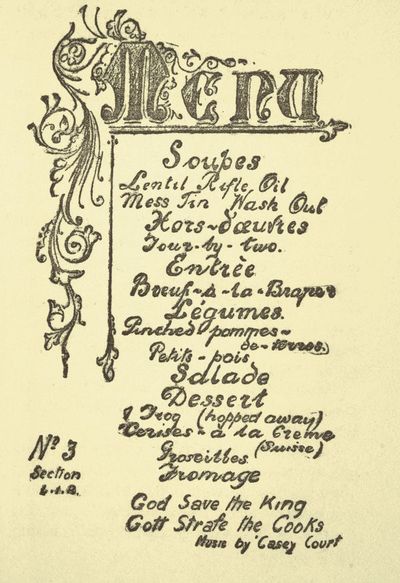 Menu
Soupes
Lentil Rifle Oil
Mess Tin Wash Out
Hors-d'œuvres
Four-by-two.
Entrèe
Bœuf-à-la-Brapos
Légumes.
Pinched pommes-
de-terres.
Petits-pois
Salade
Dessert
1 Frog (hopped away)
Cerises-à la Creme
(Suisse)
Groseilles
Fromage
God Save the King
Gott Strafe the Cooks
Music by "Casey Court
Nº 3
Section